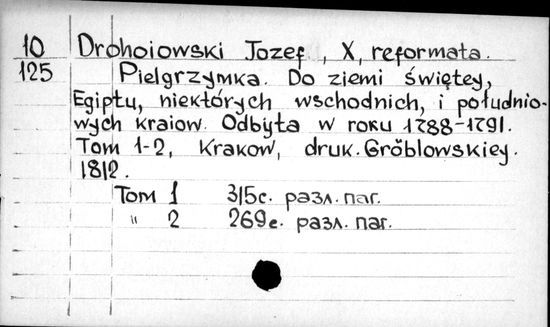 10 Drohoiowski Jozef, X, reformata.
125 Pielgrzymka. Do ziemi świętey,
Egiptu, niektórych wschodnich, i południo-
wych kraiow. Odbyta w roku 1788-1791.
Tom 1-2, Krakow, druk. Gröblowskiey.
1812.
Tom 1 315c. разл. паг.
" 2 269c. разл. паг.